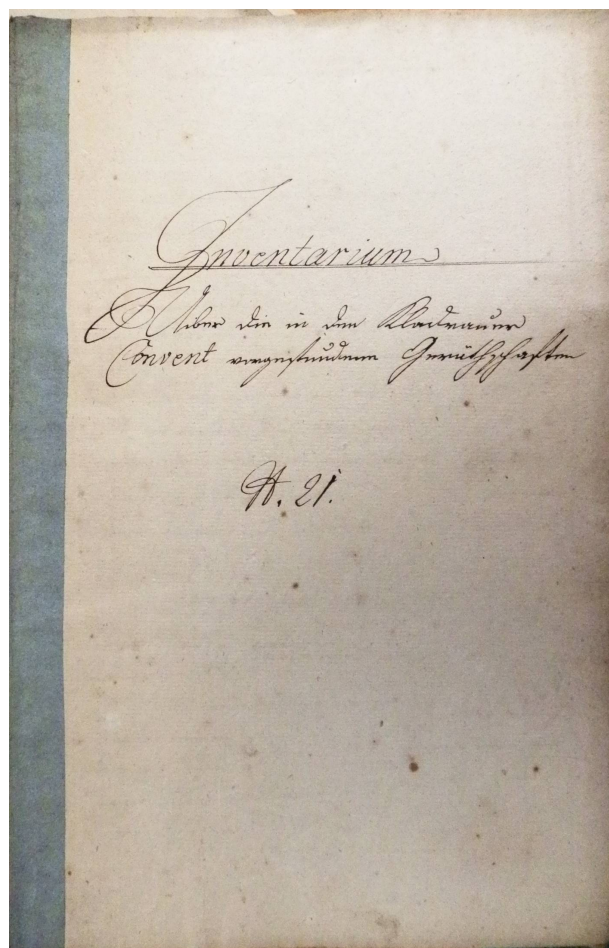 Inventarium
Uiber die in den Kladrauer
Convent vorgefundenen Geräthschaften
N. 21.